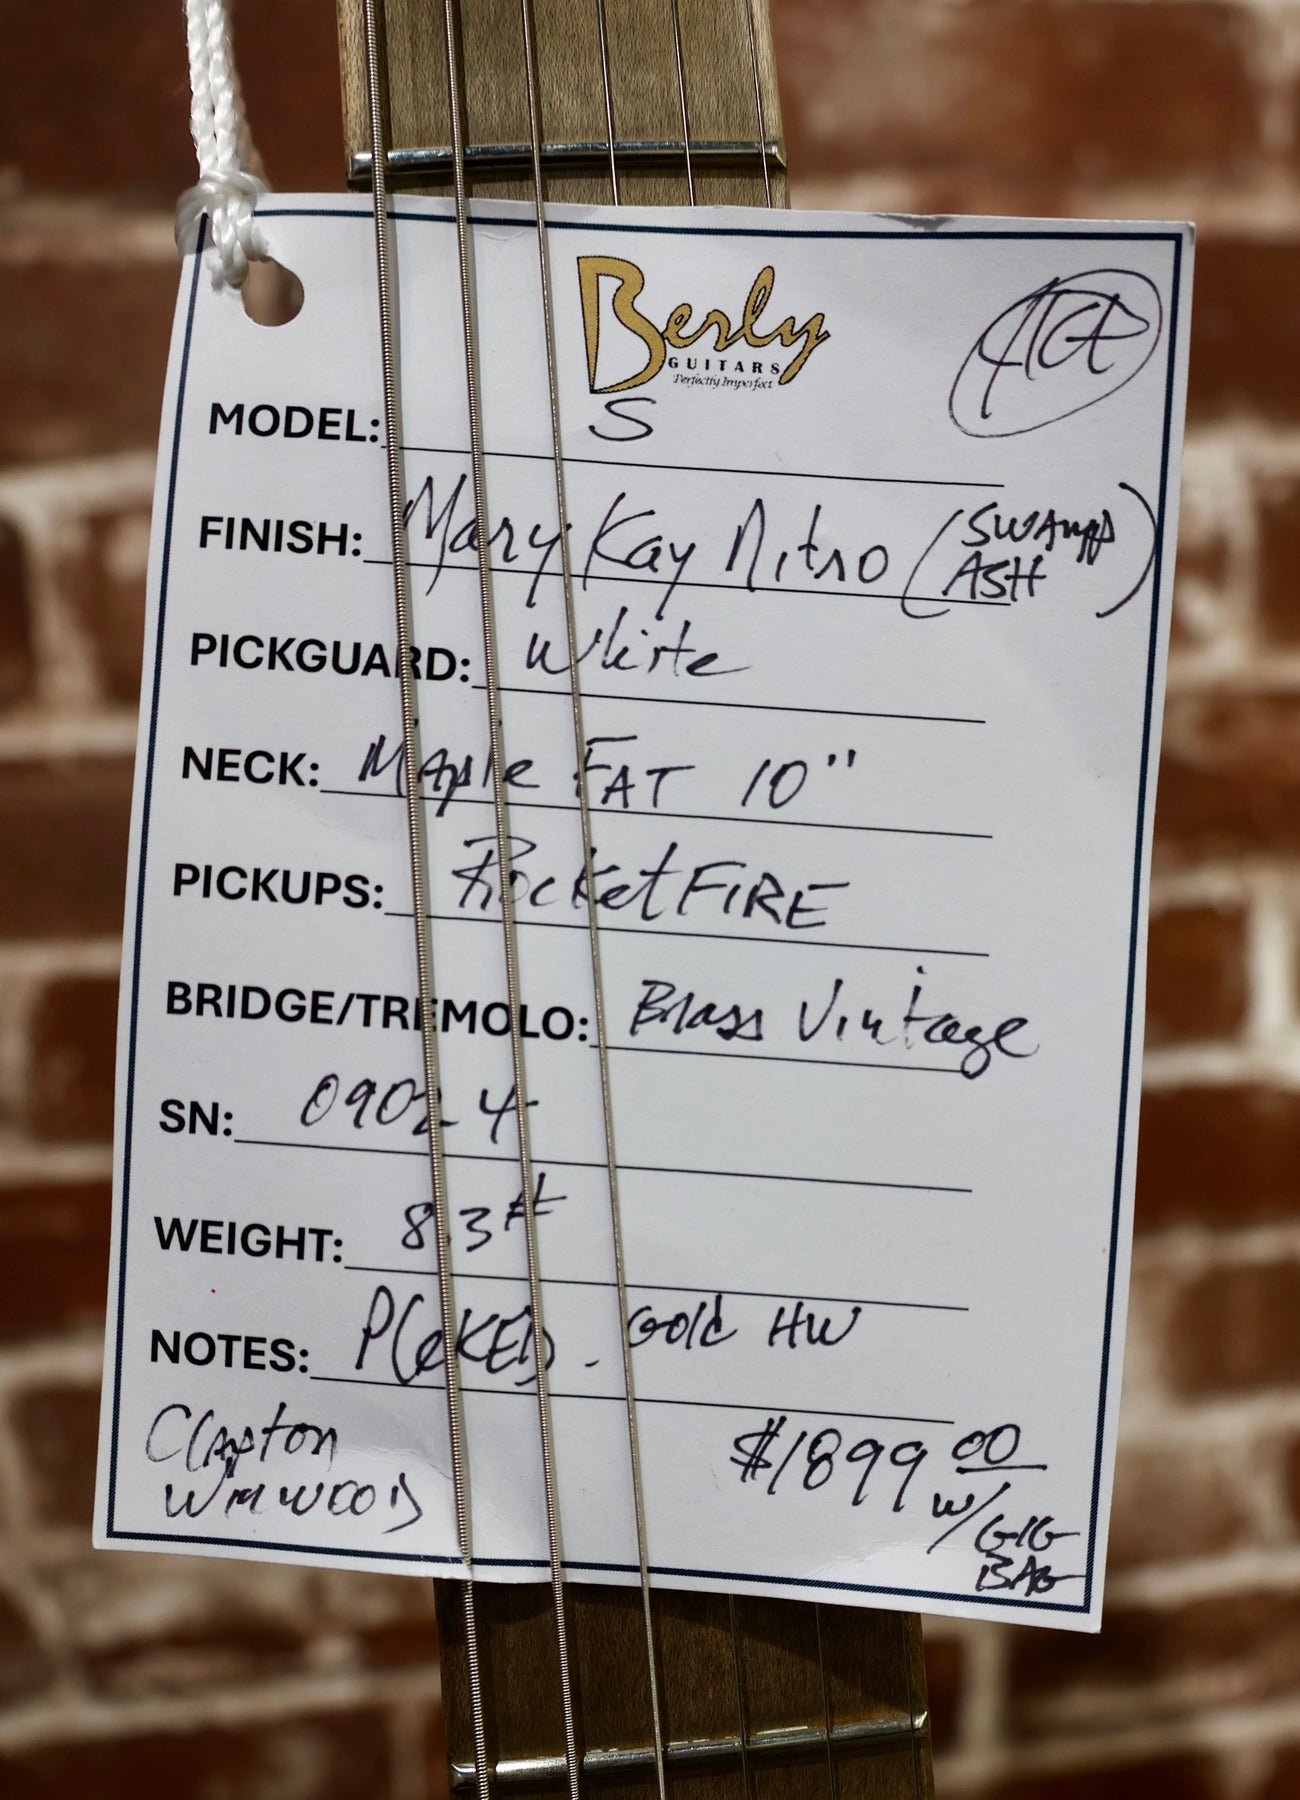 Berly
GUITARS
Perfectly Imperfect
MODEL: S
FINISH: Mary Kay Nitro (SWAMP ASH)
PICKGUARD: White
NECK: Maple FAT 10"
PICKUPS: RocketFIRE
BRIDGE/TREMOLO: Brass Vintage
SN: 09024
WEIGHT: 8.3#
NOTES: PleKED - Gold HW
Clapton
WINWOOD
$1899.00
w/GIG
BAG